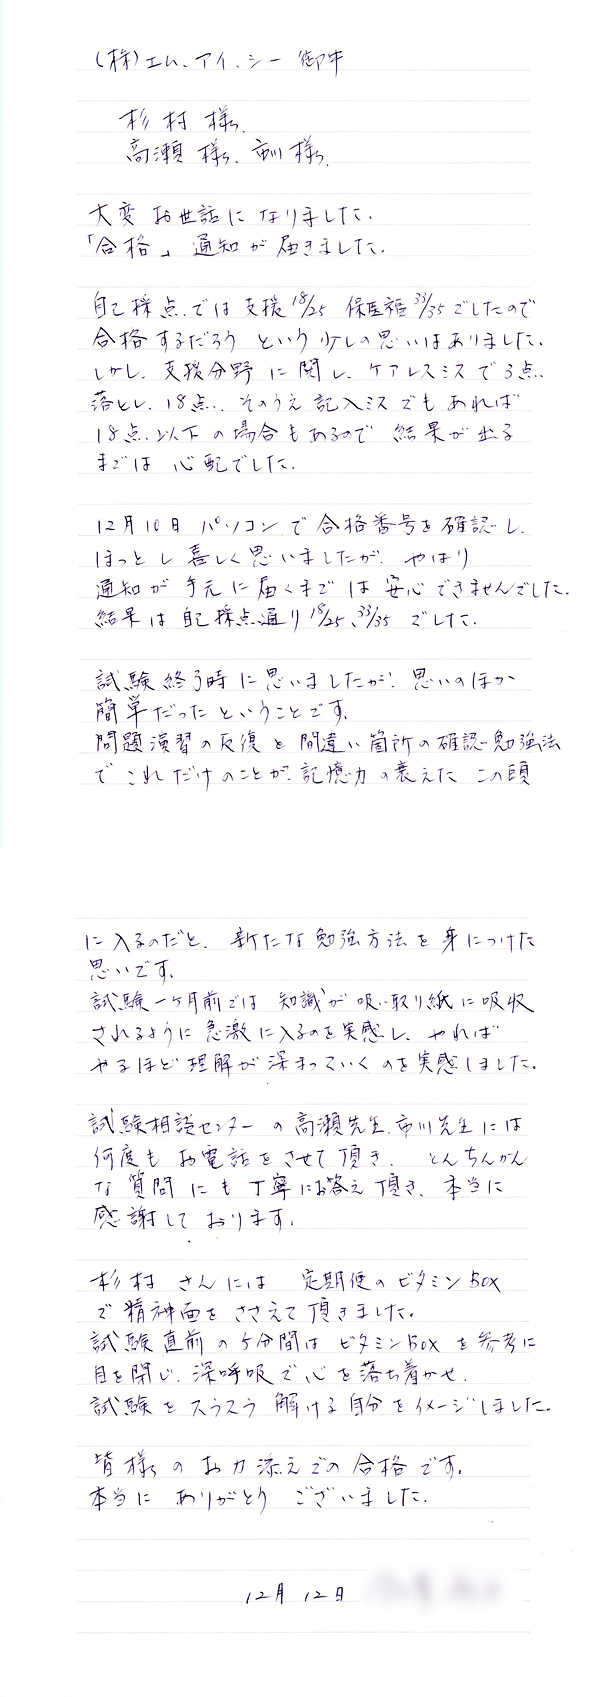 (株)エム、アイ、シー 御中
杉村様、
高瀬様、市川様、
大変お世話になりました。
「合格」通知が届きました。
自己採点では支援18/25 保医福33/35でしたので
合格するだろうという少しの思いはありました。
しかし、支援分野に関し、ケアレスミスで3点
落とし、18点、そのうえ記入ミスでもあれば
18点以下の場合もあるので結果が出る
までは心配でした。
12月10日パソコンで合格番号を確認し、
ほっとし喜しく思いましたが、やはり
通知が手元に届くまでは安心できませんでした。
結果は自己採点通り18/25、33/35でした。
試験終了時に思いましたが、思いのほか
簡単だったということです。
問題演習の反復と間違い箇所の確認勉強法
でこれだけのことが、記憶力の衰えたこの頭
に入るのだと、新たな勉強方法を身につけた
思いです。
試験一ヶ月前では知識が吸い取り紙に吸収
されるように急激に入るのを実感し、やれば
やるほど理解が深まっていくのを実感しました。
試験相談センターの高瀬先生、市川先生には
何度もお電話をさせて頂き、とんちんかん
な質問にも丁寧にお答え頂き、本当に
感謝しております。
杉村さんには定期便のビタミンBOX
で精神面をささえて頂きました。
試験直前の5分間はビタミンBoxを参考に
目を閉じ、深呼吸で心を落ち着かせ、
試験をスラスラ解ける自分をイメージしました。
皆様のお力添えでの合格です。
本当にありがとうございました。
12月12日